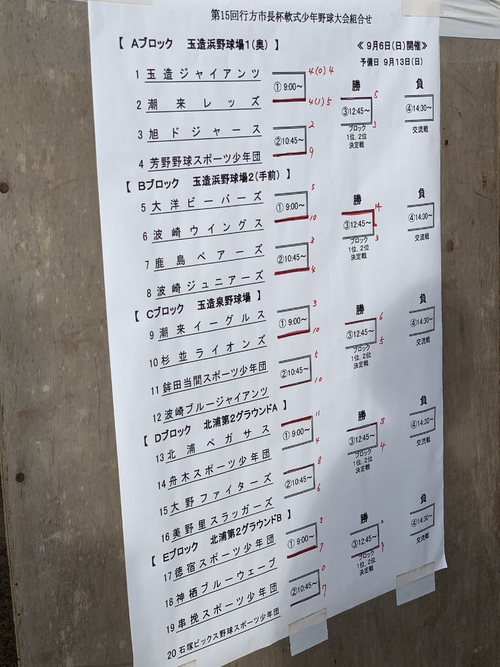 第15回行方市長杯軟式少年野球大会組合せ
【 Aブロック 玉造浜野球場1(奥) 】
≪ 9月6日(日)開催≫
予備日 9月13日(日)
1 玉造ジャイアンツ
4(0)4
① 9:00〜
2 潮来レッズ
4(1)5
3 旭ドジャース
2
②10:45〜
4 芳野野球スポーツ少年団
9
勝
5
③12:45〜
3
ブロック
1位, 2位
決定戦
負
④14:30〜
交流戦
【 Bブロック 玉造浜野球場2(手前) 】
5 大洋ビーバーズ
5
① 9:00〜
6 波崎ウイングス
10
7 鹿島ベアーズ
②10:45〜
8 波崎ジュニアーズ
勝
14
③12:45〜
3
ブロック
1位, 2位
決定戦
負
④14:30〜
交流戦
【 Cブロック 玉造泉野球場 】
9 潮来イーグルス
3
① 9:00〜
10 杉並ライオンズ
10
11 鉾田当間スポーツ少年団
②10:45〜
12 波崎ブルージャイアンツ
10
勝
6
③12:45〜
5
ブロック
1位, 2位
決定戦
負
④14:30〜
交流戦
【 Dブロック 北浦第2グラウンドA 】
13 北浦ペガサス
11
① 9:00〜
14 舟木スポーツ少年団
4
15 大野ファイターズ
8
②10:45〜
16 美野里スラッガーズ
6
勝
3
③12:45〜
4
ブロック
1位, 2位
決定戦
負
④14:30〜
交流戦
【 Eブロック 北浦第2グラウンドB 】
17 徳宿スポーツ少年団
① 9:00〜
18 神栖ブルーウェーブ
7
19 串挽スポーツ少年団
0
②10:45〜
20 石塚ビックス野球スポーツ少年団
7
勝
③12:45〜
ブロック
1位, 2位
決定戦
負
④14:30〜
交流戦